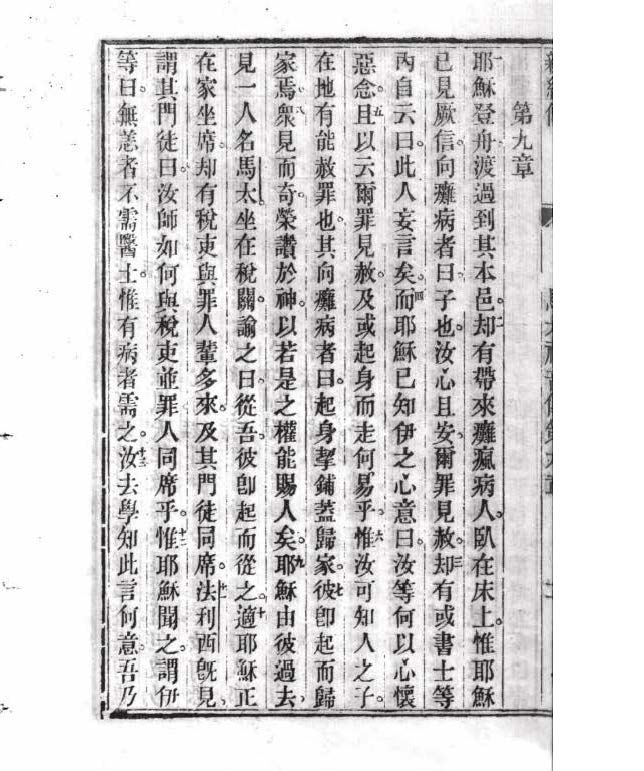 第九章
一耶穌登舟渡過到其本邑。二却有帶來癱瘋病人。臥在床上。惟耶穌
已見厥信。向癱病者曰。子也。汝心且安。爾罪見赦。三却有或書士等
內自云曰。此人妄言矣。四而耶穌已知伊之心意。曰。汝等何以心懷
惡念。五且以云爾罪見赦。及或起身而走何易乎。六惟汝可知人之子。
在地有能赦罪也。其向癱病者曰。起身挈鋪蓋歸家。七彼卽起而歸
家焉。八衆見而奇。榮讚於神。以若是之權能賜人矣。九耶穌由彼過去。
見一人名馬太。坐在稅關。諭之曰。從吾。彼卽起而從之。十適耶穌正
在家坐席。却有稅吏與罪人輩多來。及其門徒同席。十一法利西旣見。
謂其門徒曰。汝師如何與稅吏並罪人同席乎。十二惟耶穌聞之。謂伊
等曰。無恙者不需醫士。惟有病者需之。十三汝去學知此言何意。吾乃